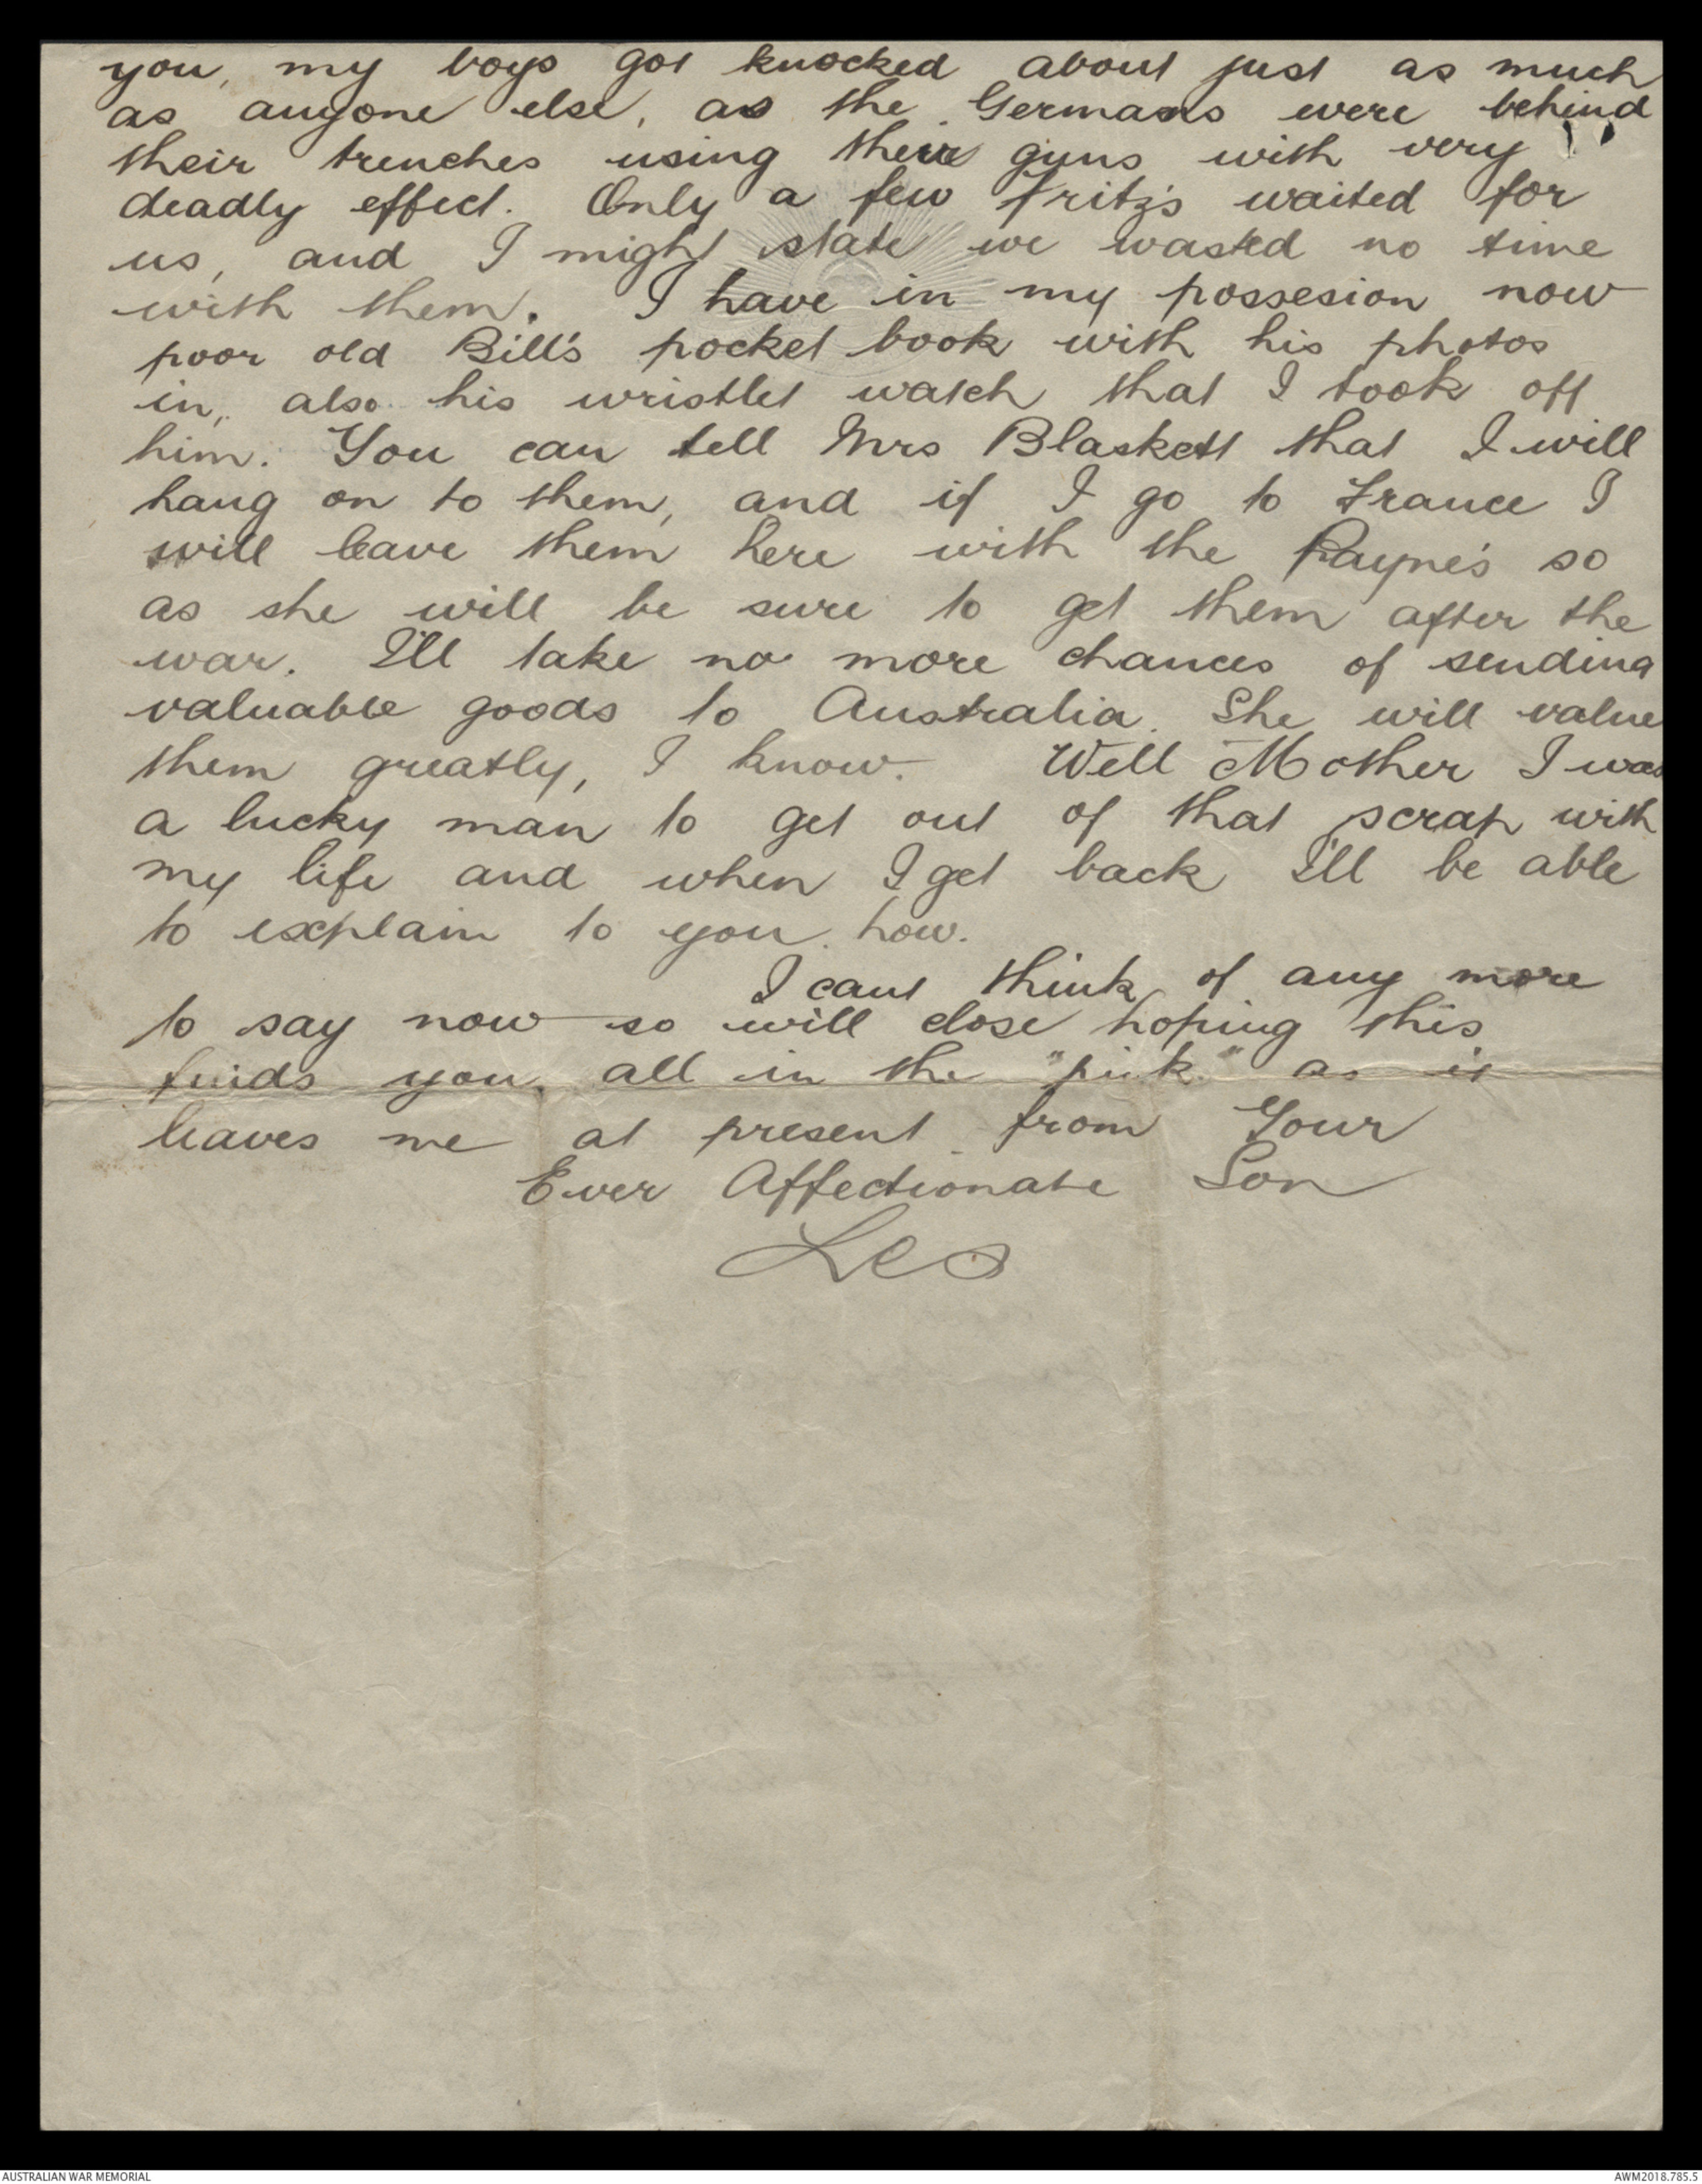 you, my boys got knocked about just as much
as anyone else, as the Germans were behind
their trenches using their guns with very
deadly effect. Only a few fritz's waited for
us, and I might state we wasted no time
with them. I have in my possesion now
poor old Bill's pocket book with his photos
in, also his wristlet watch that I took off
him. You can tell Mrs Blaskett that I will
hang on to them, and if I go to France I
will leave them here with the Payne's so
as she will be sure to get them after the
war. I'll take no more chances of sending
valuable goods to Australia. She will value
them greatly, I know. Well Mother I was
a lucky man to get out of that scrap with
my life and when I get back I'll be able
to explain to you how.
I cant think of any more
to say now so will close hoping this
finds you all in the "pink" as it
leaves me at present from Your
Ever Affectionate Son
Les
AUSTRALIAN WAR MEMORIAL
AWM2018.785.5